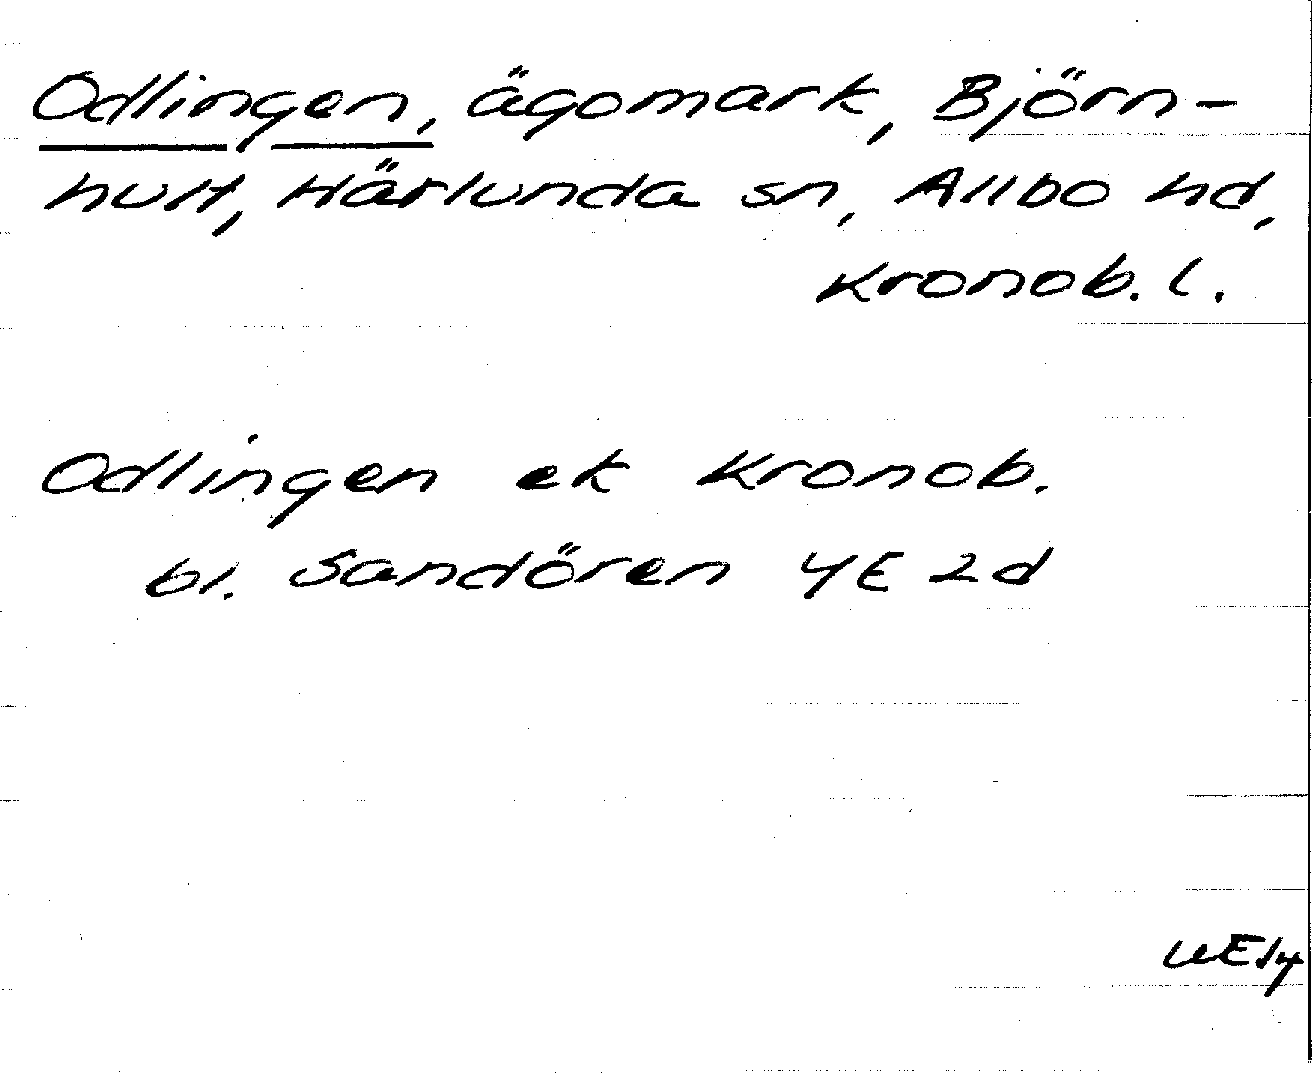 Odlingen, ägomark, Björn-
hult, Härlunda sn, Allbo hd,
Kronob. l.
Odlingen ek Kronob.
bl. Sandören 4E 2d